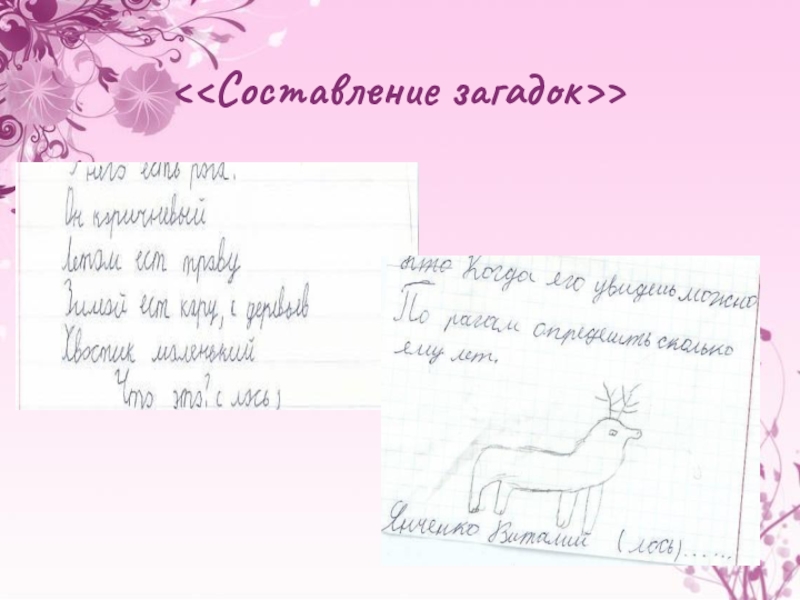 <<Составление загадок>>
У него есть рога.
Он коричневый
Летом ест траву
Зимой ест кару, с деревьев
Хвостик маленький
Что это? (лось)
Когда его увидешь можно
По рагам определить сколько
ему лет.
Янченко Виталий (лось)......